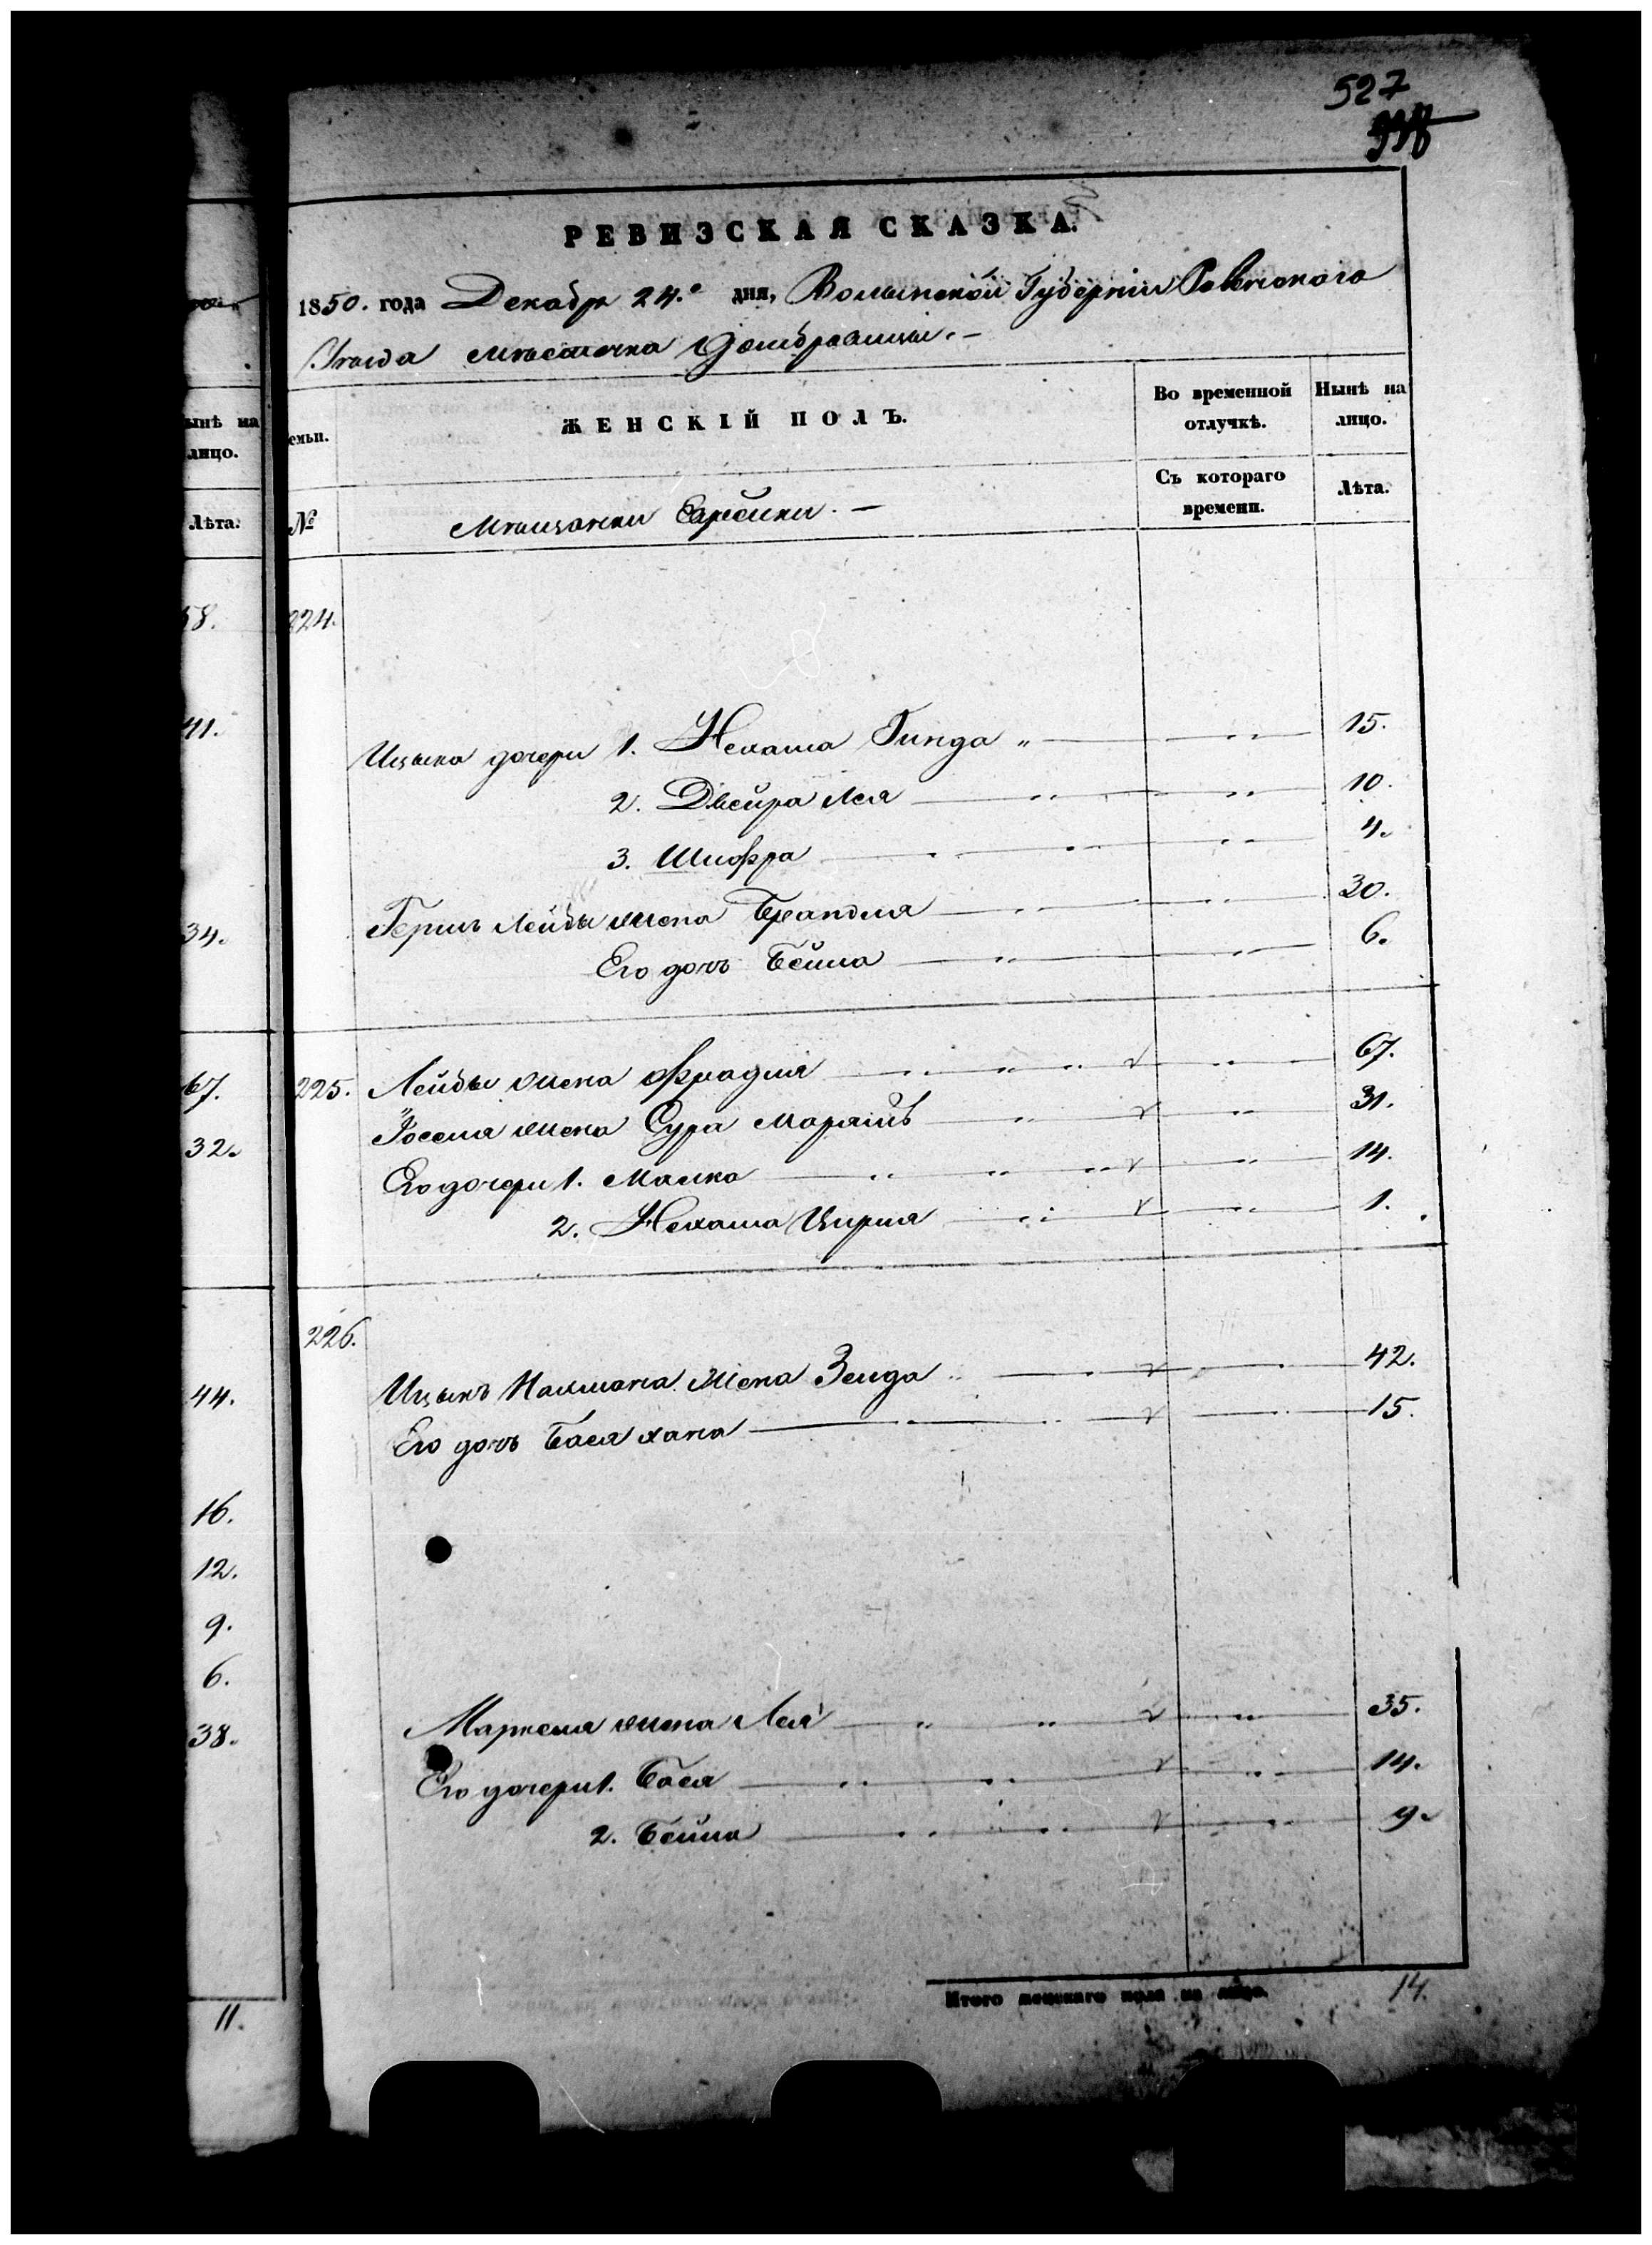 527
РЕВИЗСКАЯ СКАЗКА.
1850. года Декабр 24.º дня, Волынской Губерніи Ровенского
Уѣзда мѣстечка Домбровицы. —
ынѣ на
лицо.
Лѣта.
58.
41.
34.
67.
32.
44.
16.
12.
9.
6.
38.
11.
емьи. ЖЕНСКІЙ ПОЛЪ. Во временной отлучкѣ. Нынѣ на лицо.
№ Мѣщанки Еврейки. — Съ котораго времени. Лѣта.
224.
Ицька дочери 1. Нехама Гинда " 15.
2. Двейра Лея 10.
3. Шифра 4.
Гершъ Лейбы жена Брандля 30.
Его дочь Бейла 6.
225. Лейбы жена Фрадля 67.
Иоселя жена Сура Маріямъ 31.
Его дочери 1. Малка 14.
2. Нехама Цирля 1.
226.
Ицыкъ Калмана жена Зелда 42.
Его дочь Бася Хана 15.
Маркеля жена Лея 35.
Его дочери 1. Бася 14.
2. Бейла 9.
Итого женскаго пола на лицо. 14.